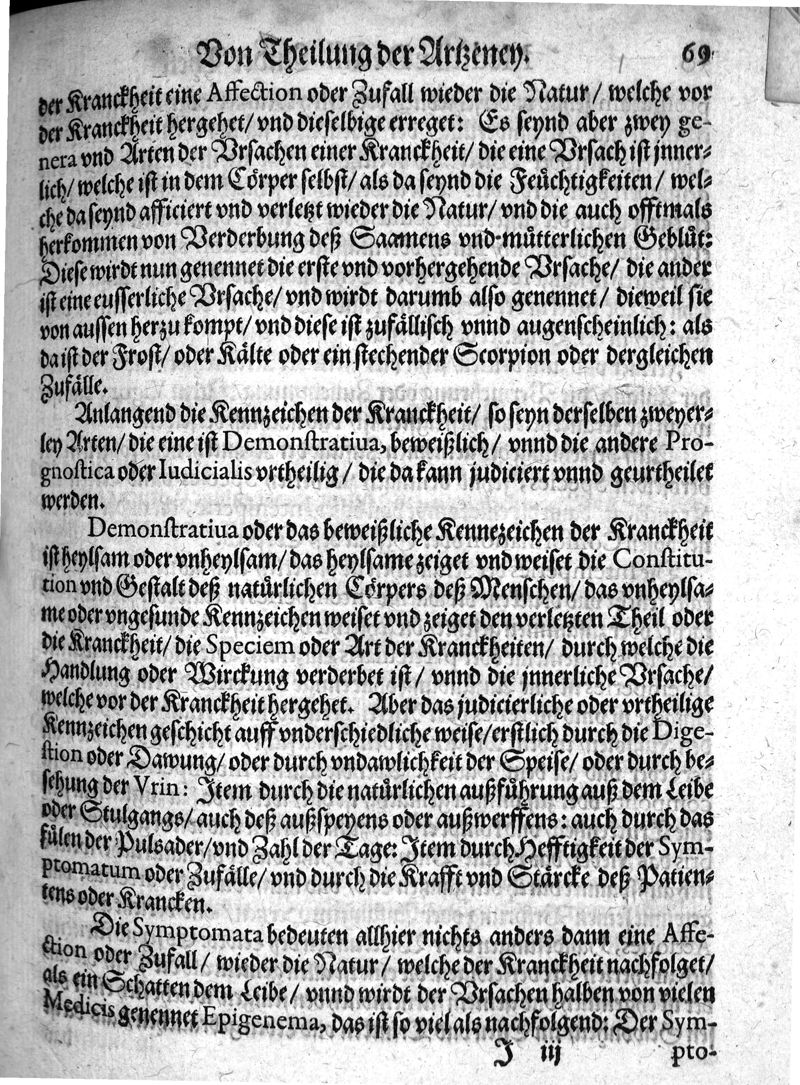 Von Theilung der Artzeney. 69
der Kranckheit eine Affection oder Zufall wieder die Natur / welche vor
der Kranckheit hergehet / vnd dieselbige erreget: Es seynd aber zwey ge-
nera vnd Arten der Vrsachen einer Kranckheit / die eine Vrsach ist jnner-
lich / welche ist in dem Cörper selbst / als da seynd die Feüchtigkeiten / wel-
che da seynd afficiert vnd verletzt wieder die Natur / vnd die auch offtmals
herkommen von Verderbung deß Saamens vnd mütterlichen Geblüt:
Diese wirdt nun genennet die erste vnd vorhergehende Vrsache / die ander
ist eine eusserliche Vrsache / vnd wirdt darumb also genennet / dieweil sie
von aussen herzu kompt / vnd diese ist zufällisch vnnd augenscheinlich: als
da ist der Frost / oder Kälte oder ein stechender Scorpion oder dergleichen
Zufälle.
Anlangend die Kennzeichen der Kranckheit / so seyn derselben zweyer-
ley Arten / die eine ist Demonstratiua, beweißlich / vnnd die andere Pro-
gnostica oder Iudicialis vrtheilig / die da kann judiciert vnnd geurtheilet
werden.
Demonstratiua oder das beweißliche Kennezeichen der Kranckheit
ist heylsam oder vnheylsam / das heylsame zeiget vnd weiset die Constitu-
tion vnd Gestalt deß natürlichen Cörpers deß Menschen / das vnheylsa-
me oder vngesunde Kennzeichen weiset vnd zeiget den verletzten Theil oder
die Kranckheit / die Speciem oder Art der Kranckheiten / durch welche die
Handlung oder Wirckung verderbet ist / vnnd die jnnerliche Vrsache /
welche vor der Kranckheit hergehet. Aber das judicierliche oder vrtheilige
Kennzeichen geschicht auff vnderschiedliche weise / erstlich durch die Dige-
stion oder Dawung / oder durch vndawlichkeit der Speise / oder durch be-
sehung der Vrin: Item durch die natürlichen außführung auß dem Leibe
oder Stulgangs / auch deß außspeyens oder außwerffens: auch durch das
fülen der Pulsader / vnd Zahl der Tage: Item durch Hefftigkeit der Sym-
ptomatum oder Zufälle / vnd durch die Krafft vnd Stärcke deß Patien-
tens oder Krancken.
Die Symptomata bedeuten allhier nichts anders dann eine Affe-
ction oder Zufall / wieder die Natur / welche der Kranckheit nachfolget /
als ein Schatten dem Leibe / vnnd wirdt der Vrsachen halben von vielen
Medicis genennet Epigenema, das ist so viel als nachfolgend: Der Sym-
J iij pto-